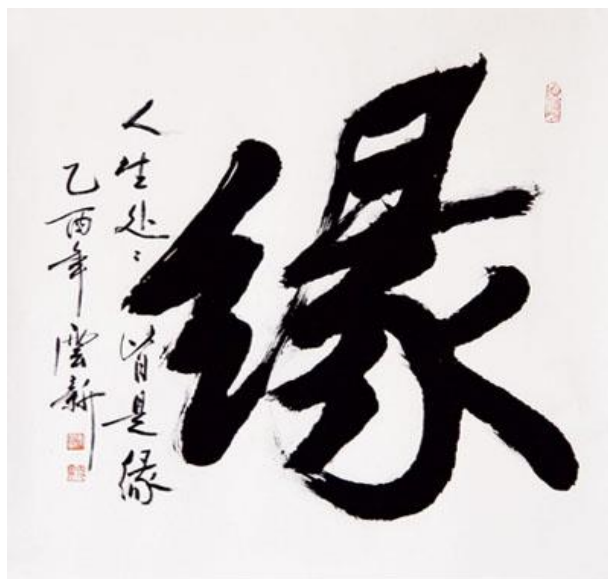 缘
人生处处皆是缘
乙酉年 雲新